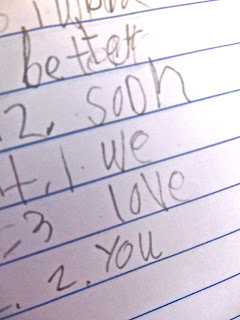 better
2. soon
1. we
3 love
2. You